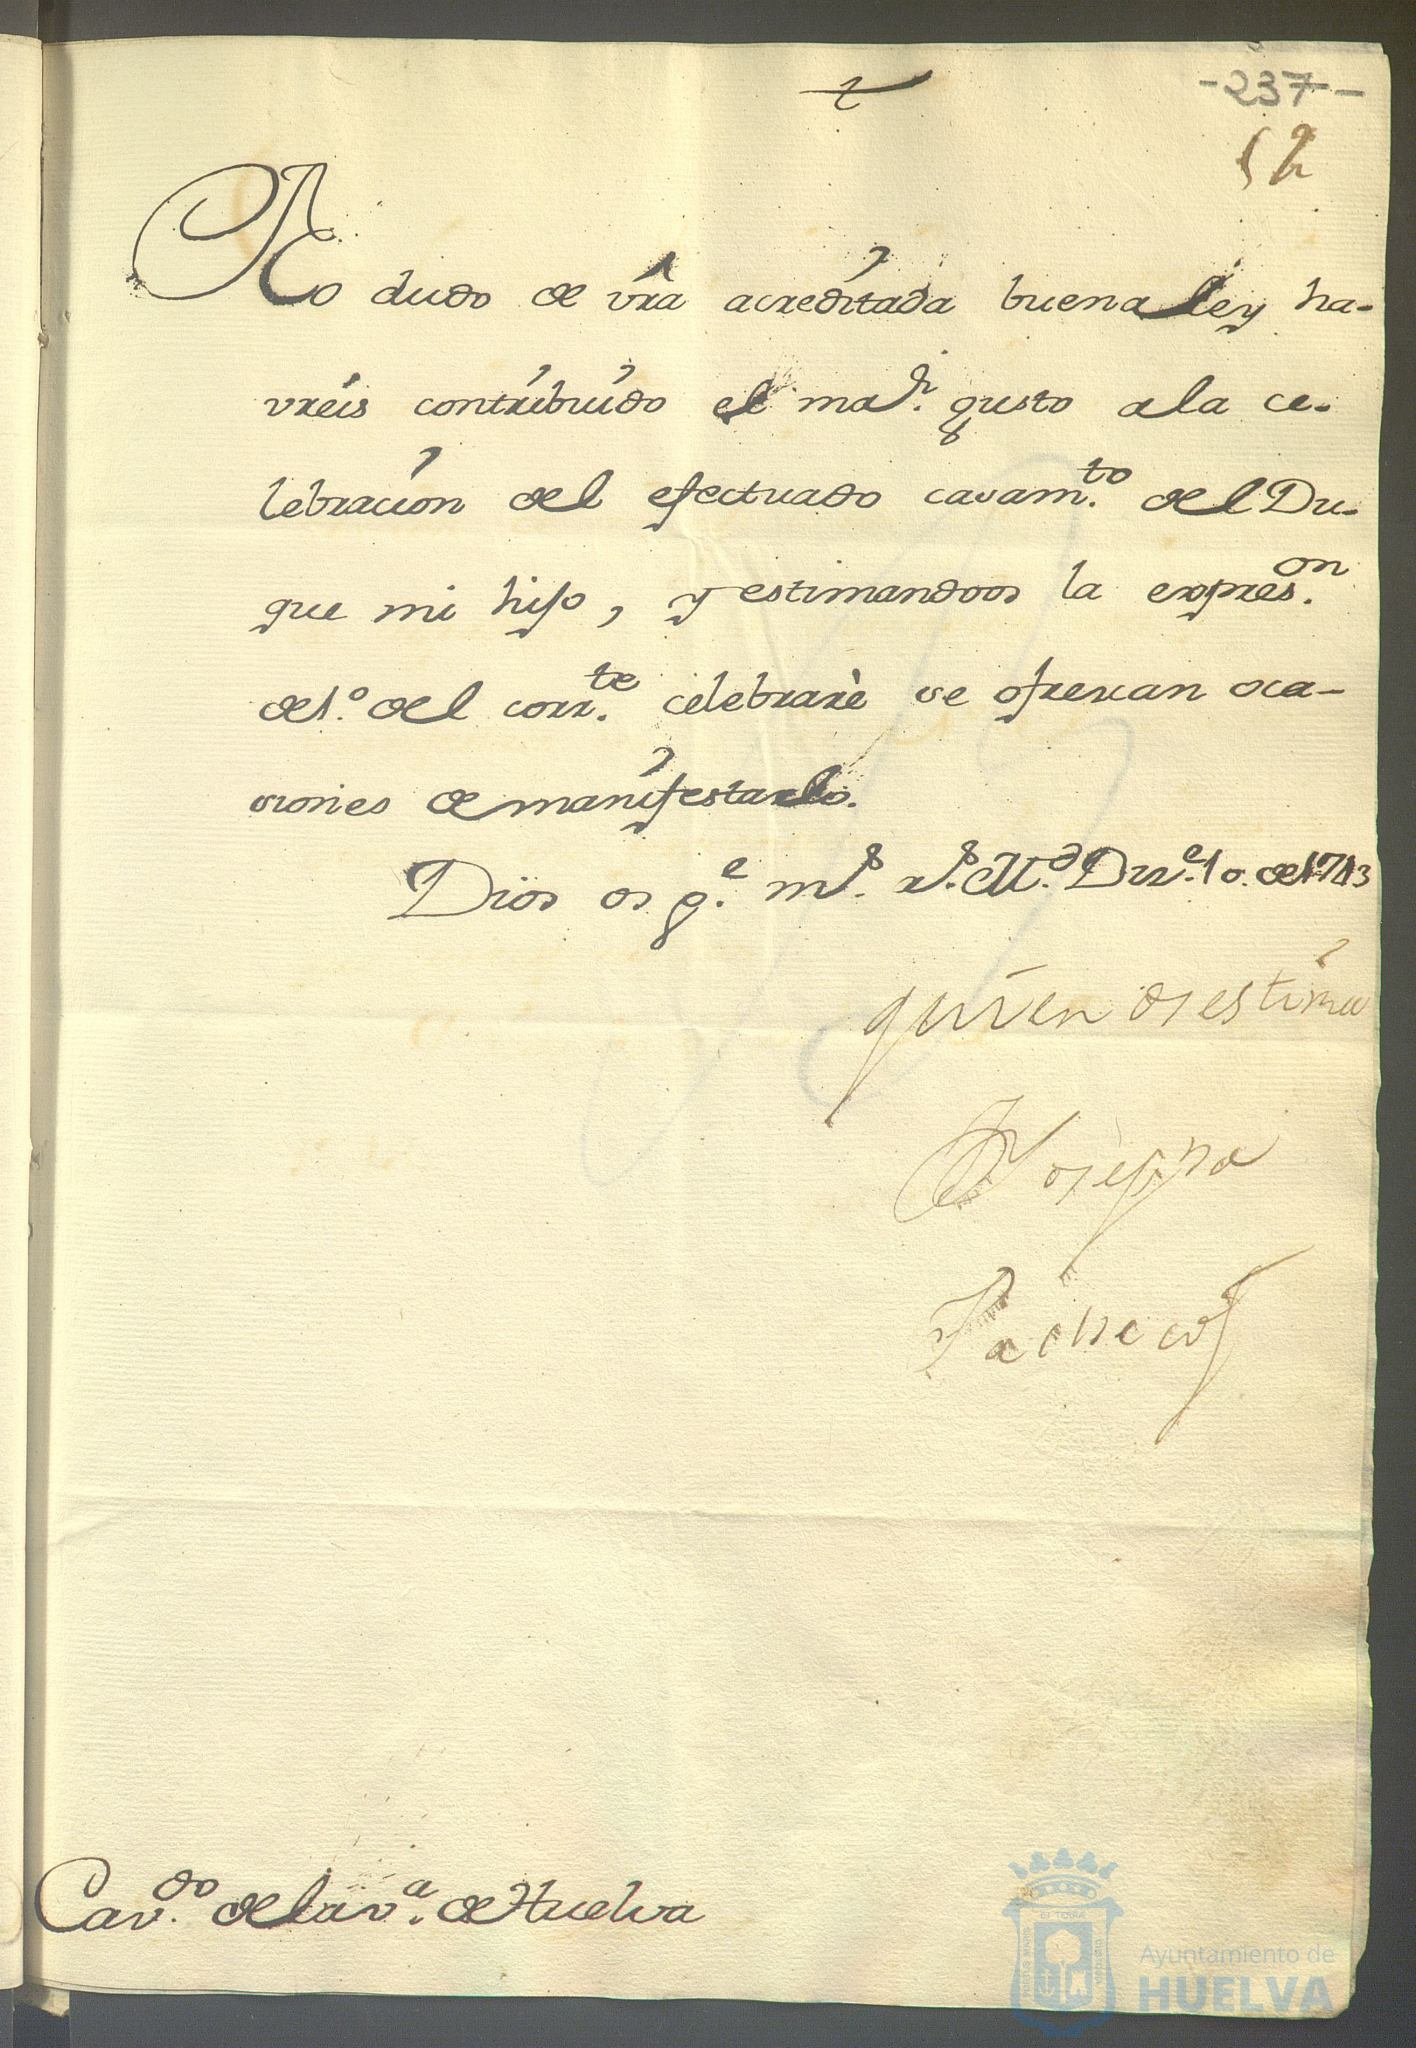 -237-
52
No dudo de vrã acreditada buena ley ha-
vreis contribuido el maōr. gusto a la ce-
lebracion del efectuado casam.to del Du-
que mi hijo, y estimandoos la expres.on
de 1.º del corr.te celebrarè se ofrezcan oca-
siones de manifestarlo.
Dios os g.e m.s a.s M.d Diz.e 10. de 1713
quien os estima
Josepha
Pacheco
Cav.do de la v.a de Huelva
Ayuntamiento de
HUELVA